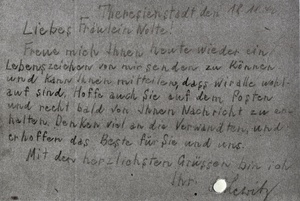 Theresienstadt den 18.11.
Liebes Fräulein Nolte!
Freue mich Ihnen heute wieder ein
Lebenszeichen von mir senden zu können
und kann Ihnen mitteilen, dass wir alle wohl-
auf sind. Hoffe auch Sie auf dem Posten
und recht bald von Ihnen Nachricht zu er-
halten. Denken viel an die Verwandten, und
erhoffen das Beste für Sie und uns.
Mit den herzlichsten Grüssen bin ich
Ihr